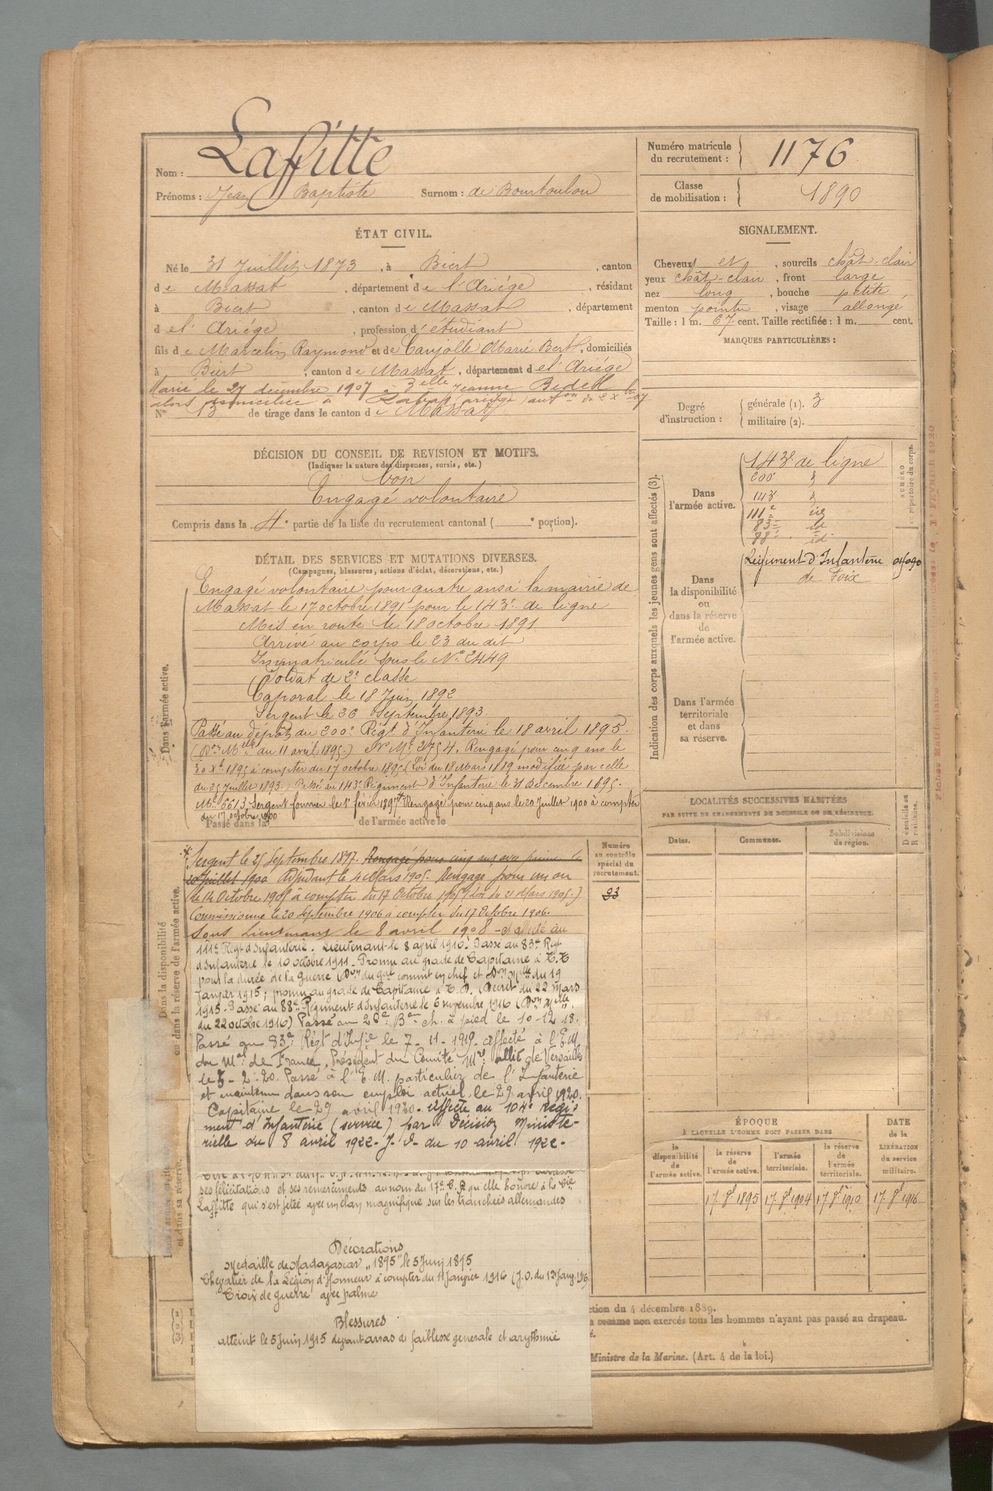 Nom : Laffitte
Prénoms : Jean Baptiste Surnom : de Bourtoulou
Numéro matricule du recrutement : 1176
Classe de mobilisation : 1890
ÉTAT CIVIL.
Né le 31 Juillet 1873, à Biert, canton
de Massat, département de l'Ariège, résidant
à Biert, canton de Massat, département
d el' Ariège, profession d'étudiant
fils de Marcelin Raymond et de Caujolle Marie Bert, domiciliés
à Biert, canton de Massat, département del' Ariège
Marié le 27 décembre 1907 à Jeanne Bedel
N° 13 de tirage dans le canton de Massat
SIGNALEMENT.
Cheveux et, sourcils chât-clair
yeux chât-clair, front large
nez long, bouche petite,
menton pointu, visage allongé
Taille : 1 m. 67 cent. Taille rectifiée : 1 m. cent.
MARQUES PARTICULIÈRES :
Degré d'instruction : générale (1). 3
militaire (2).
DÉCISION DU CONSEIL DE REVISION ET MOTIFS.
(Indiquer la nature des dispenses, sursis, etc.)
bon
Engagé volontaire
Compris dans la 4e partie de la liste du recrutement cantonal ( portion).
DÉTAIL DES SERVICES ET MUTATIONS DIVERSES.
(Campagnes, blessures, actions d'éclat, décorations, etc.)
Dans l'armée active.
Engagé volontaire pour quatre ans à la mairie de
Massat le 17 octobre 1891 pour le 143e de ligne
Mis en route le 18 octobre 1891.
Arrivé au corps le 23 du dit
Immatriculé sous le N° 2449
Soldat de 2e classe
Caporal le 18 Juin 1892
Sergent le 26 Septembre 1893.
Passé au dépôt du 200e Régt d'Infanterie le 18 avril 1895.
du 11 avril 1895) Rengagé pour cinq ans le
1895 à compter du 17 octobre 1895 (Loi du 18 Mars 1889 modifiée par celle
du 25 Juillet 1893; Passé au 143e Régiment d'Infanterie le 31 Décembre 1895.
Sergent fourrier le Rengagé pour cinq ans le 20 Juillet 1900 à compter
du 17 octobre 1900
Passé dans la de l'armée active le
Dans la disponibilité ou dans la réserve de l'armée active.
Sergent le 25 Septembre 1897. Rengagé pour cinq ans avec prime le
20 Juillet 1900 Adjudant le 4 Mars 1905. Rengagé pour un an
le 14 Octobre 1905 à compter du 17 Octobre 1905 (Loi du 21 Mars 1905.)
Commissionné le 20 Septembre 1906 à compter du 17 Octobre 1906.
Sous Lieutenant le 8 avril 1908
111e Régt d'Infanterie. Lieutenant le 8 avril 1910. Passé au 83e Régt
d'Infanterie le 10 octobre 1911. Promu au grade de Capitaine à T.T.
pour la durée de la guerre du 19
Janvier 1915; promu au grade de Capitaine à T.D. (Décret du 22 mars
1915. Passé au 88e Régiment d'Infanterie le 6 novembre 1916
du 22 octobre 1916) Passé au 26e Bon ch. à pied le 10-12-18.
Passé au 83e Régt d'Infie le 7-11-1919. affecté à l'E.M.
du Mal de France, Président du Comité Mre allié de Versailles
le 5-2-20. Passé à l'E.M. particulier de l'Infanterie
et maintenu dans son emploi actuel le 29 avril 1920.
Capitaine le 29 avril 1920. affecté au 104e Régi-
ment d'Infanterie (service) par Décision Ministé-
rielle du 8 avril 1922 - J.O. du 10 avril 1922.
ses félicitations et ses remerciements au nom du 17e C.A. qu'elle honore à la Cie
Laffitte qui s'est jetée avec un élan magnifique sur les tranchées allemandes
Décorations
Médaille de Madagascar "1895" le 5 Juin 1895
Chevalier de la Légion d'Honneur à compter du 11 Janvier 1916 (J.O. du 13 Janv. 1916
Croix de guerre avec palme
Blessures
atteint le 5 Juin 1915 devant arras de faiblesse générale et arythmie
Numéro au contrôle spécial du recrutement.
93
Indication des corps auxquels les jeunes gens sont affectés (3).
Dans l'armée active.
143e de ligne
200e
143e
111e id
83e id
88e id
NUMÉRO au répertoire du corps.
Dans la disponibilité ou dans la réserve de l'armée active.
Régiment d'Infanterie
de Foix
Dans l'armée territoriale et dans sa réserve.
LOCALITÉS SUCCESSIVES HABITÉES
PAR SUITE DE CHANGEMENTS DE DOMICILE OU DE RÉSIDENCE.
Dates. Communes. Subdivisions de région. D domicile ou R résidence.
ÉPOQUE
À LAQUELLE L'HOMME DOIT PASSER DANS
DATE de la LIBÉRATION du service militaire.
la disponibilité de l'armée active. la réserve de l'armée active. l'armée territoriale. la réserve de l'armée territoriale.
17 8e 1895 17 8e 1904 17 8e 1910 17 8e 1916
ction du 4 décembre 1889.
comme non exercés tous les hommes n'ayant pas passé au drapeau.
Ministre de la Marine. (Art. 4 de la loi.)